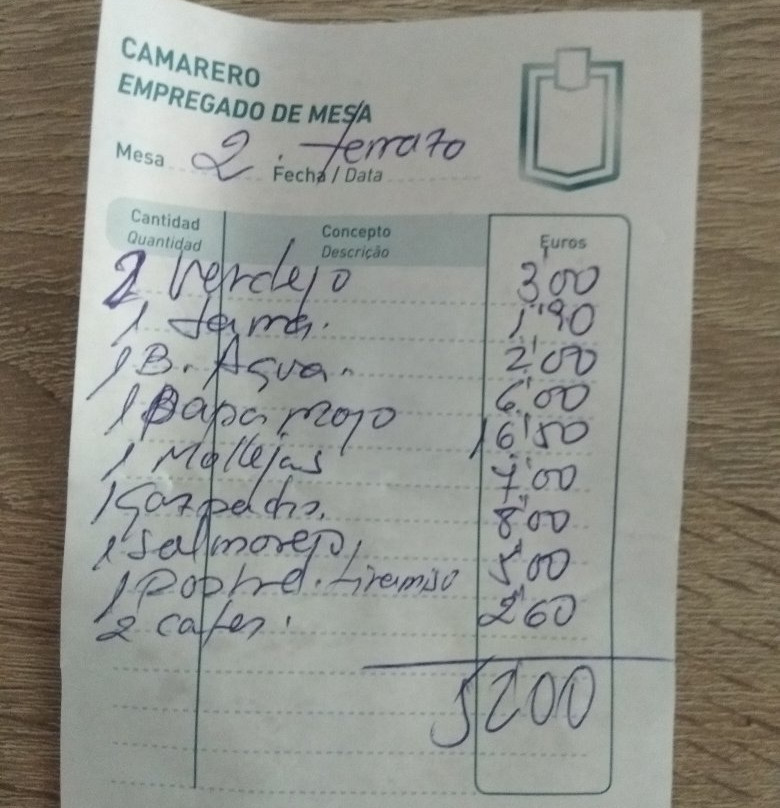 CAMARERO
EMPREGADO DE MESA
Mesa 2. terrazo
Fecha / Data
Cantidad Concepto Euros
Quantidad Descrição
2 Verdejo 3'00
1 Jama. 1'90
1 B. Agua. 2'00
1 Papa mojo 6'00
1 Mollejas 16'50
1 Gazpacho. 7'00
1 Salmorejo, 8'00
1 Postre. tiramiso 5'00
2 cafes. 2'60
5200